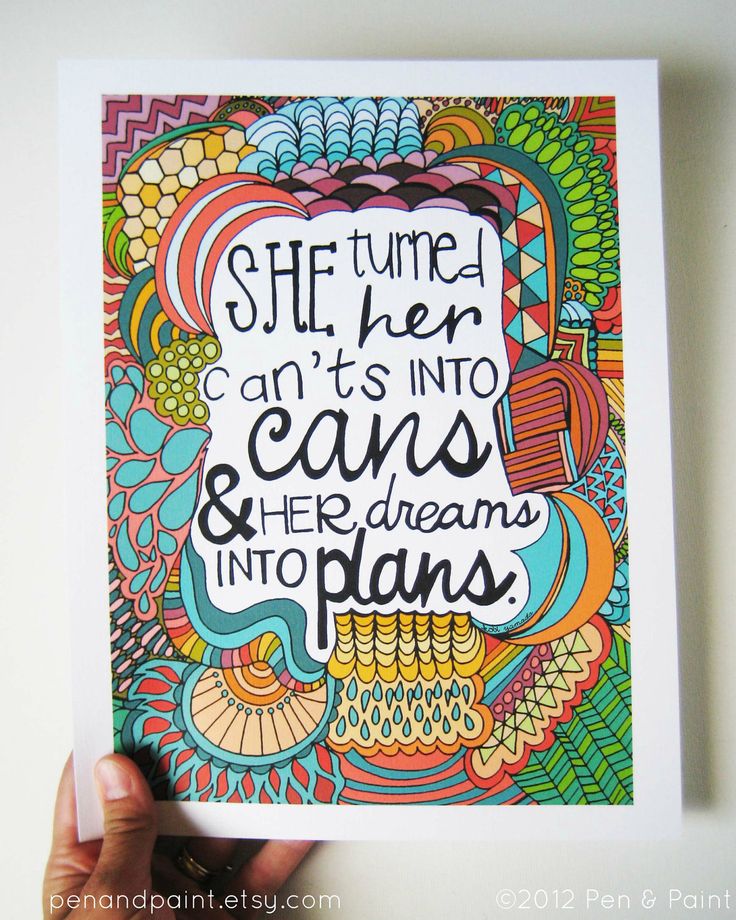 SHE turned
her
can'ts INTO
cans
& HER dreams
INTO plans.
penandpaint.etsy.com
©2012 Pen & Paint